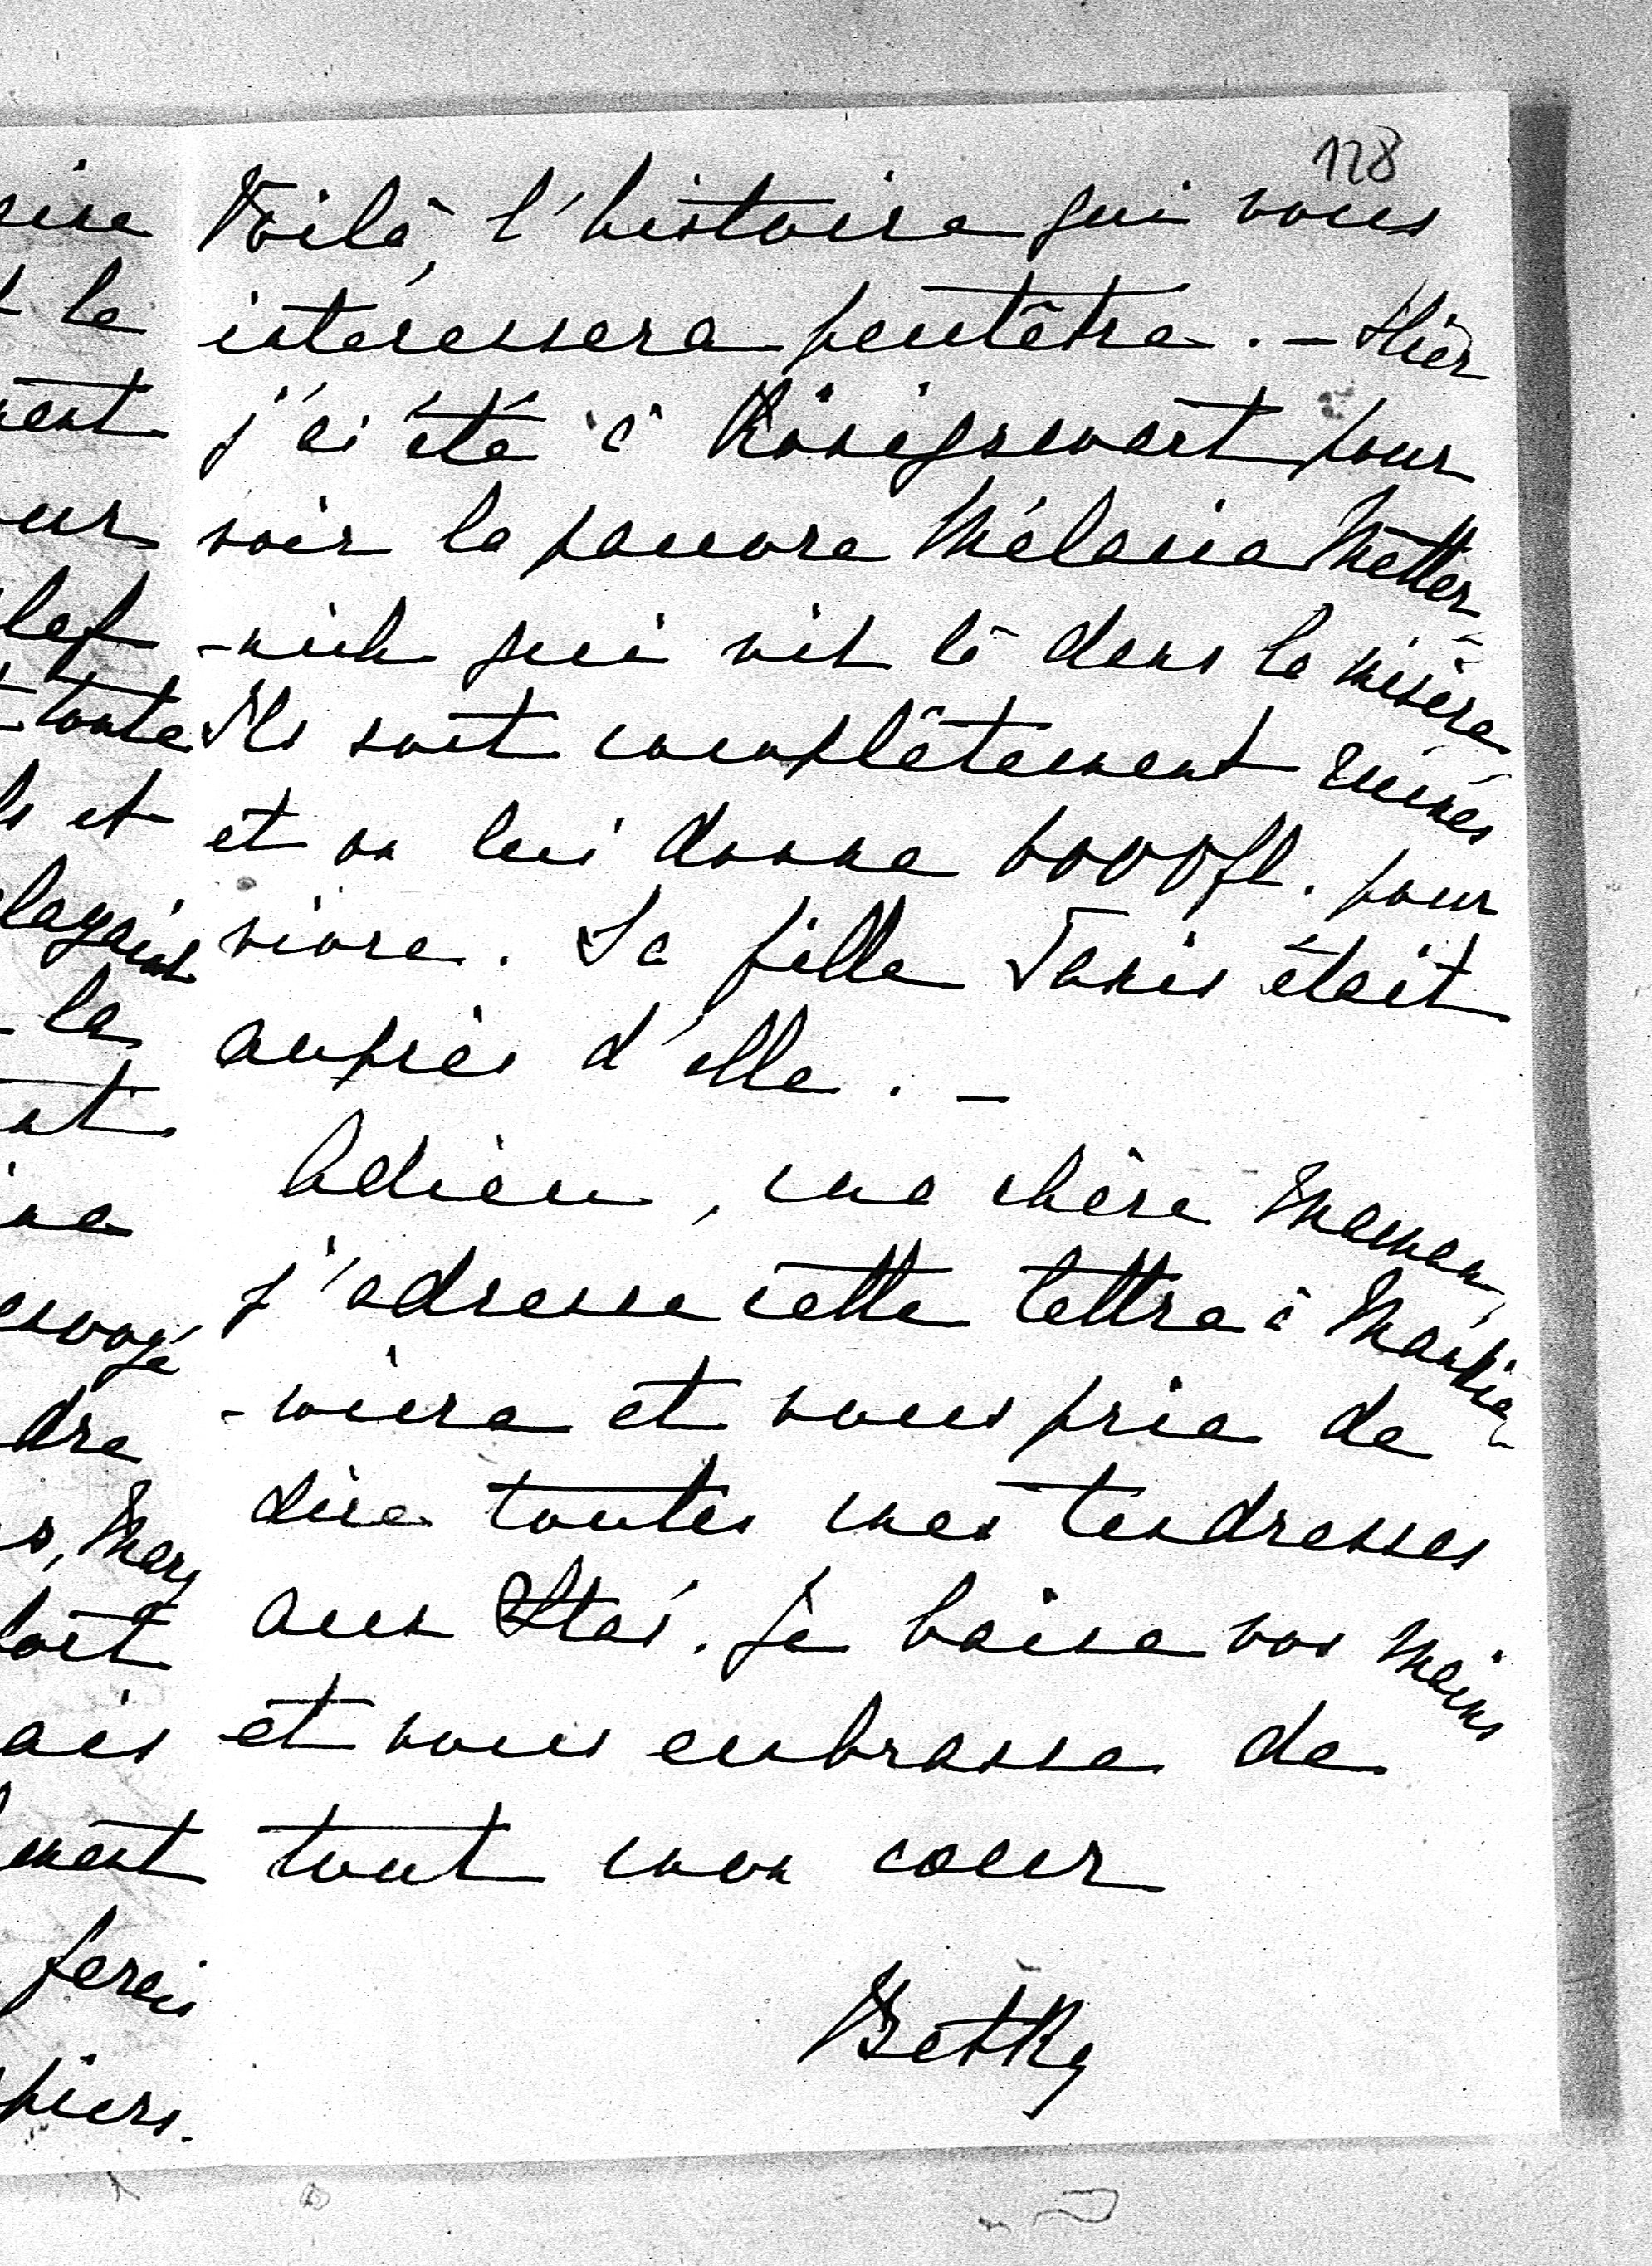 128
Voilà, l'histoire qui vous
intéressera peutêtre. - Hier
j'ai été à Königswart pour
voir la pauvre Mélanie Metter-
-nich qui vit là dans la misère
Ils sont complêtement ruinés
et on lui donne 6000fl. pour
vivre. Sa fille Taxis était
auprès d'elle. -
Adieu, ma chère Maman,
j'adresse cette lettre à Mańkie-
-wicze et vous prie de
dire toutes mes tendresses
aux Staś. Je baise vos mains
et vous embrasse de
tout mon cœur
Betka
le
toute
et
la
envoyé
dre
Mary
ferais